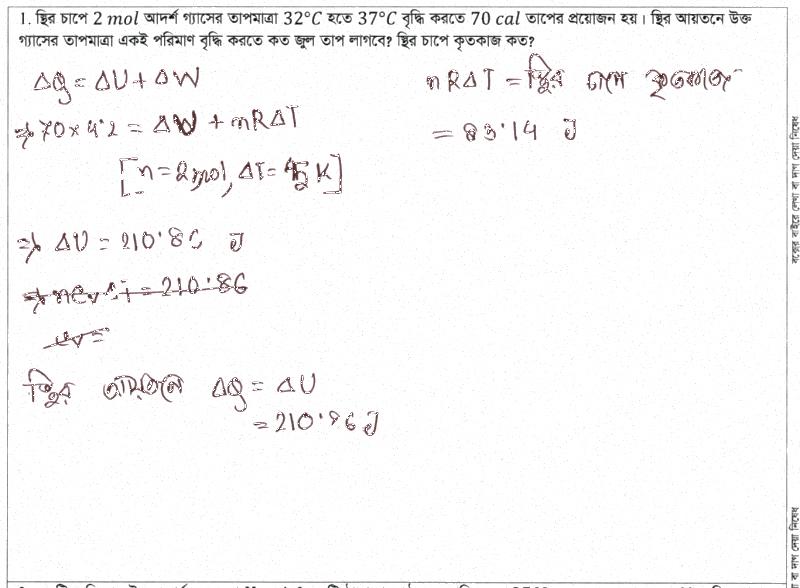 1. স্থির চাপে 2 mol আদর্শ গ্যাসের তাপমাত্রা 32°C হতে 37°C বৃদ্ধি করতে 70 cal তাপের প্রয়োজন হয়। স্থির আয়তনে উক্ত
গ্যাসের তাপমাত্রা একই পরিমাণ বৃদ্ধি করতে কত জুল তাপ লাগবে? স্থির চাপে কৃতকাজ কত?
ΔQ = ΔU + ΔW
⇒ 70 × 4.2 = ΔU + nRΔT
[n = 2 mol, ΔT = 5 K]
⇒ ΔU = 210.86 J
⇒ nCvΔT = 210.86
Cv =
স্থির আয়তনে ΔQ = ΔU
= 210.86 J
nRΔT = স্থির চাপে কৃতকাজ
= 83.14 J
বক্সের বাইরে লেখা বা দাগ দেয়া নিষেধ
বা দাগ দেয়া নিষেধ